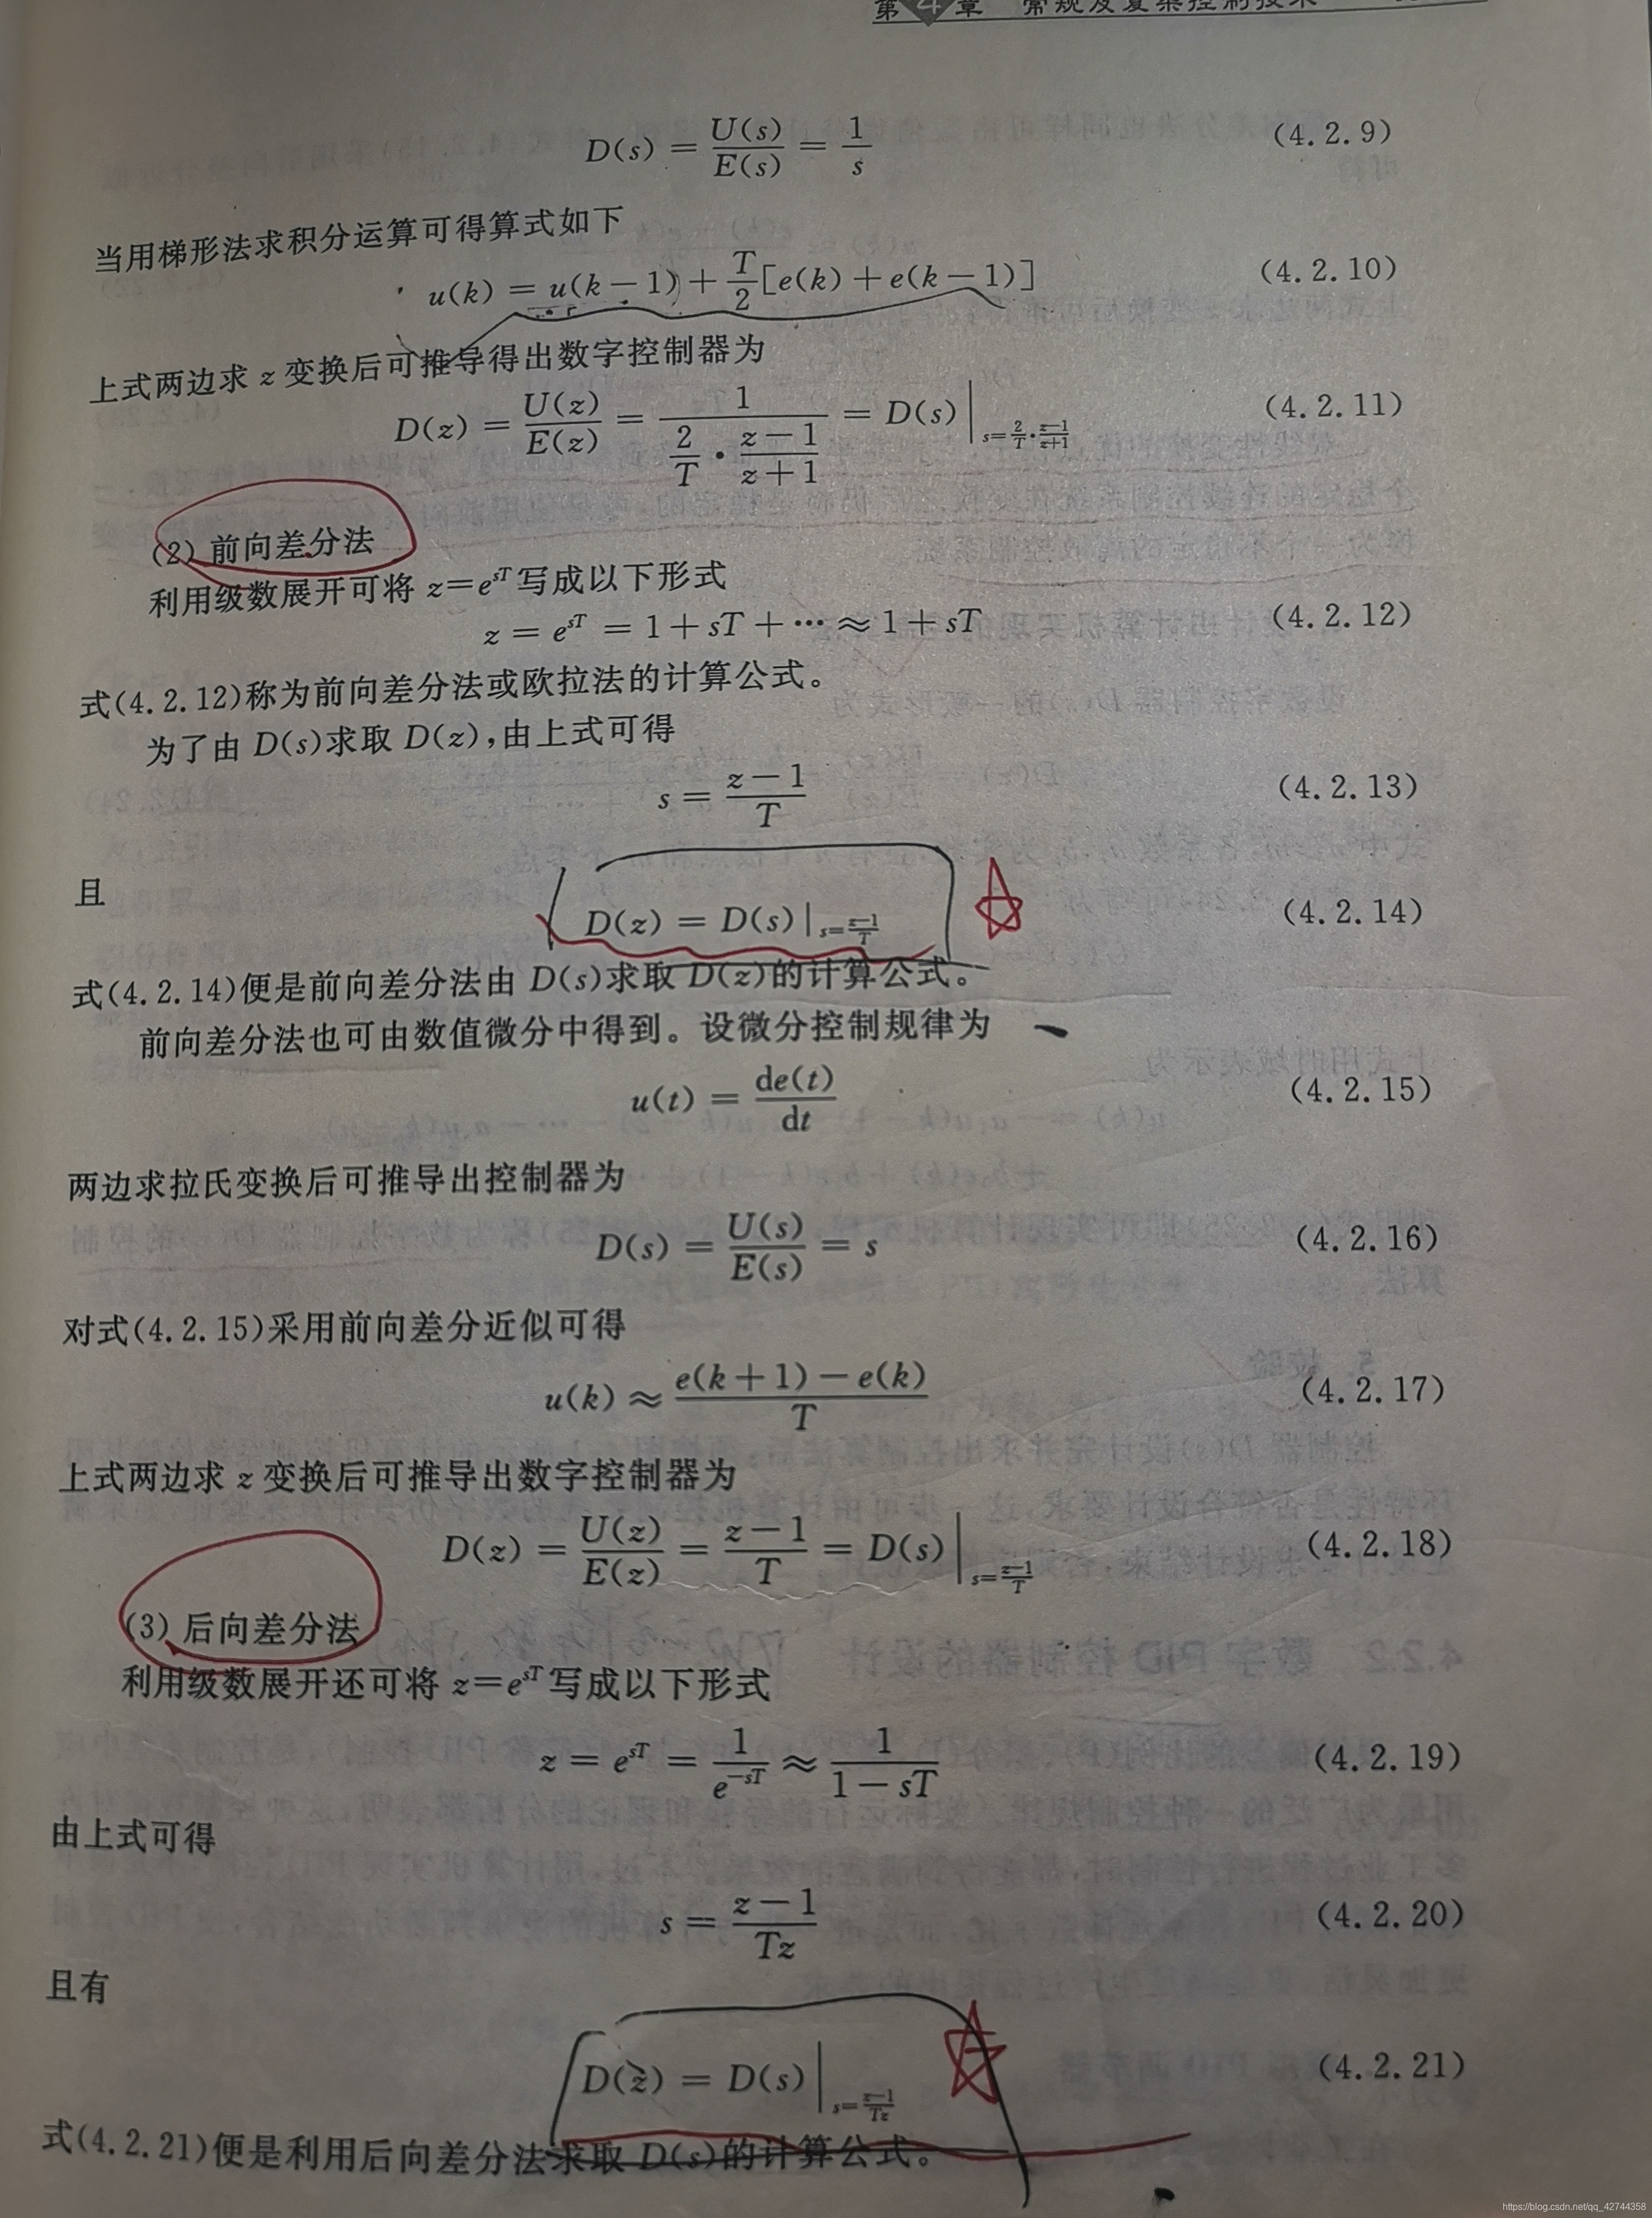 第4章 常规及复杂控制技术
D(s) = U(s)/E(s) = 1/s (4.2.9)
当用梯形法求积分运算可得算式如下
u(k) = u(k-1) + T/2[e(k) + e(k-1)] (4.2.10)
上式两边求 z 变换后可推导得出数字控制器为
D(z) = U(z)/E(z) = 1/(2/T · (z-1)/(z+1)) = D(s)|s=2/T·(z-1)/(z+1) (4.2.11)
(2) 前向差分法
利用级数展开可将 z=e^{sT} 写成以下形式
z = e^{sT} = 1 + sT + ⋯ ≈ 1 + sT (4.2.12)
式(4.2.12)称为前向差分法或欧拉法的计算公式。
为了由 D(s)求取 D(z),由上式可得
s = (z-1)/T (4.2.13)
且
D(z) = D(s)|s=(z-1)/T (4.2.14)
式(4.2.14)便是前向差分法由 D(s)求取 D(z)的计算公式。
前向差分法也可由数值微分中得到。设微分控制规律为
u(t) = de(t)/dt (4.2.15)
两边求拉氏变换后可推导出控制器为
D(s) = U(s)/E(s) = s (4.2.16)
对式(4.2.15)采用前向差分近似可得
u(k) ≈ (e(k+1) - e(k))/T (4.2.17)
上式两边求 z 变换后可推导出数字控制器为
D(z) = U(z)/E(z) = (z-1)/T = D(s)|s=(z-1)/T (4.2.18)
(3) 后向差分法
利用级数展开还可将 z=e^{sT} 写成以下形式
z = e^{sT} = 1/e^{-sT} ≈ 1/(1-sT) (4.2.19)
由上式可得
s = (z-1)/Tz (4.2.20)
且有
D(z) = D(s)|s=(z-1)/Tz (4.2.21)
式(4.2.21)便是利用后向差分法求取 D(s)的计算公式。
https://blog.csdn.net/qq_42744358